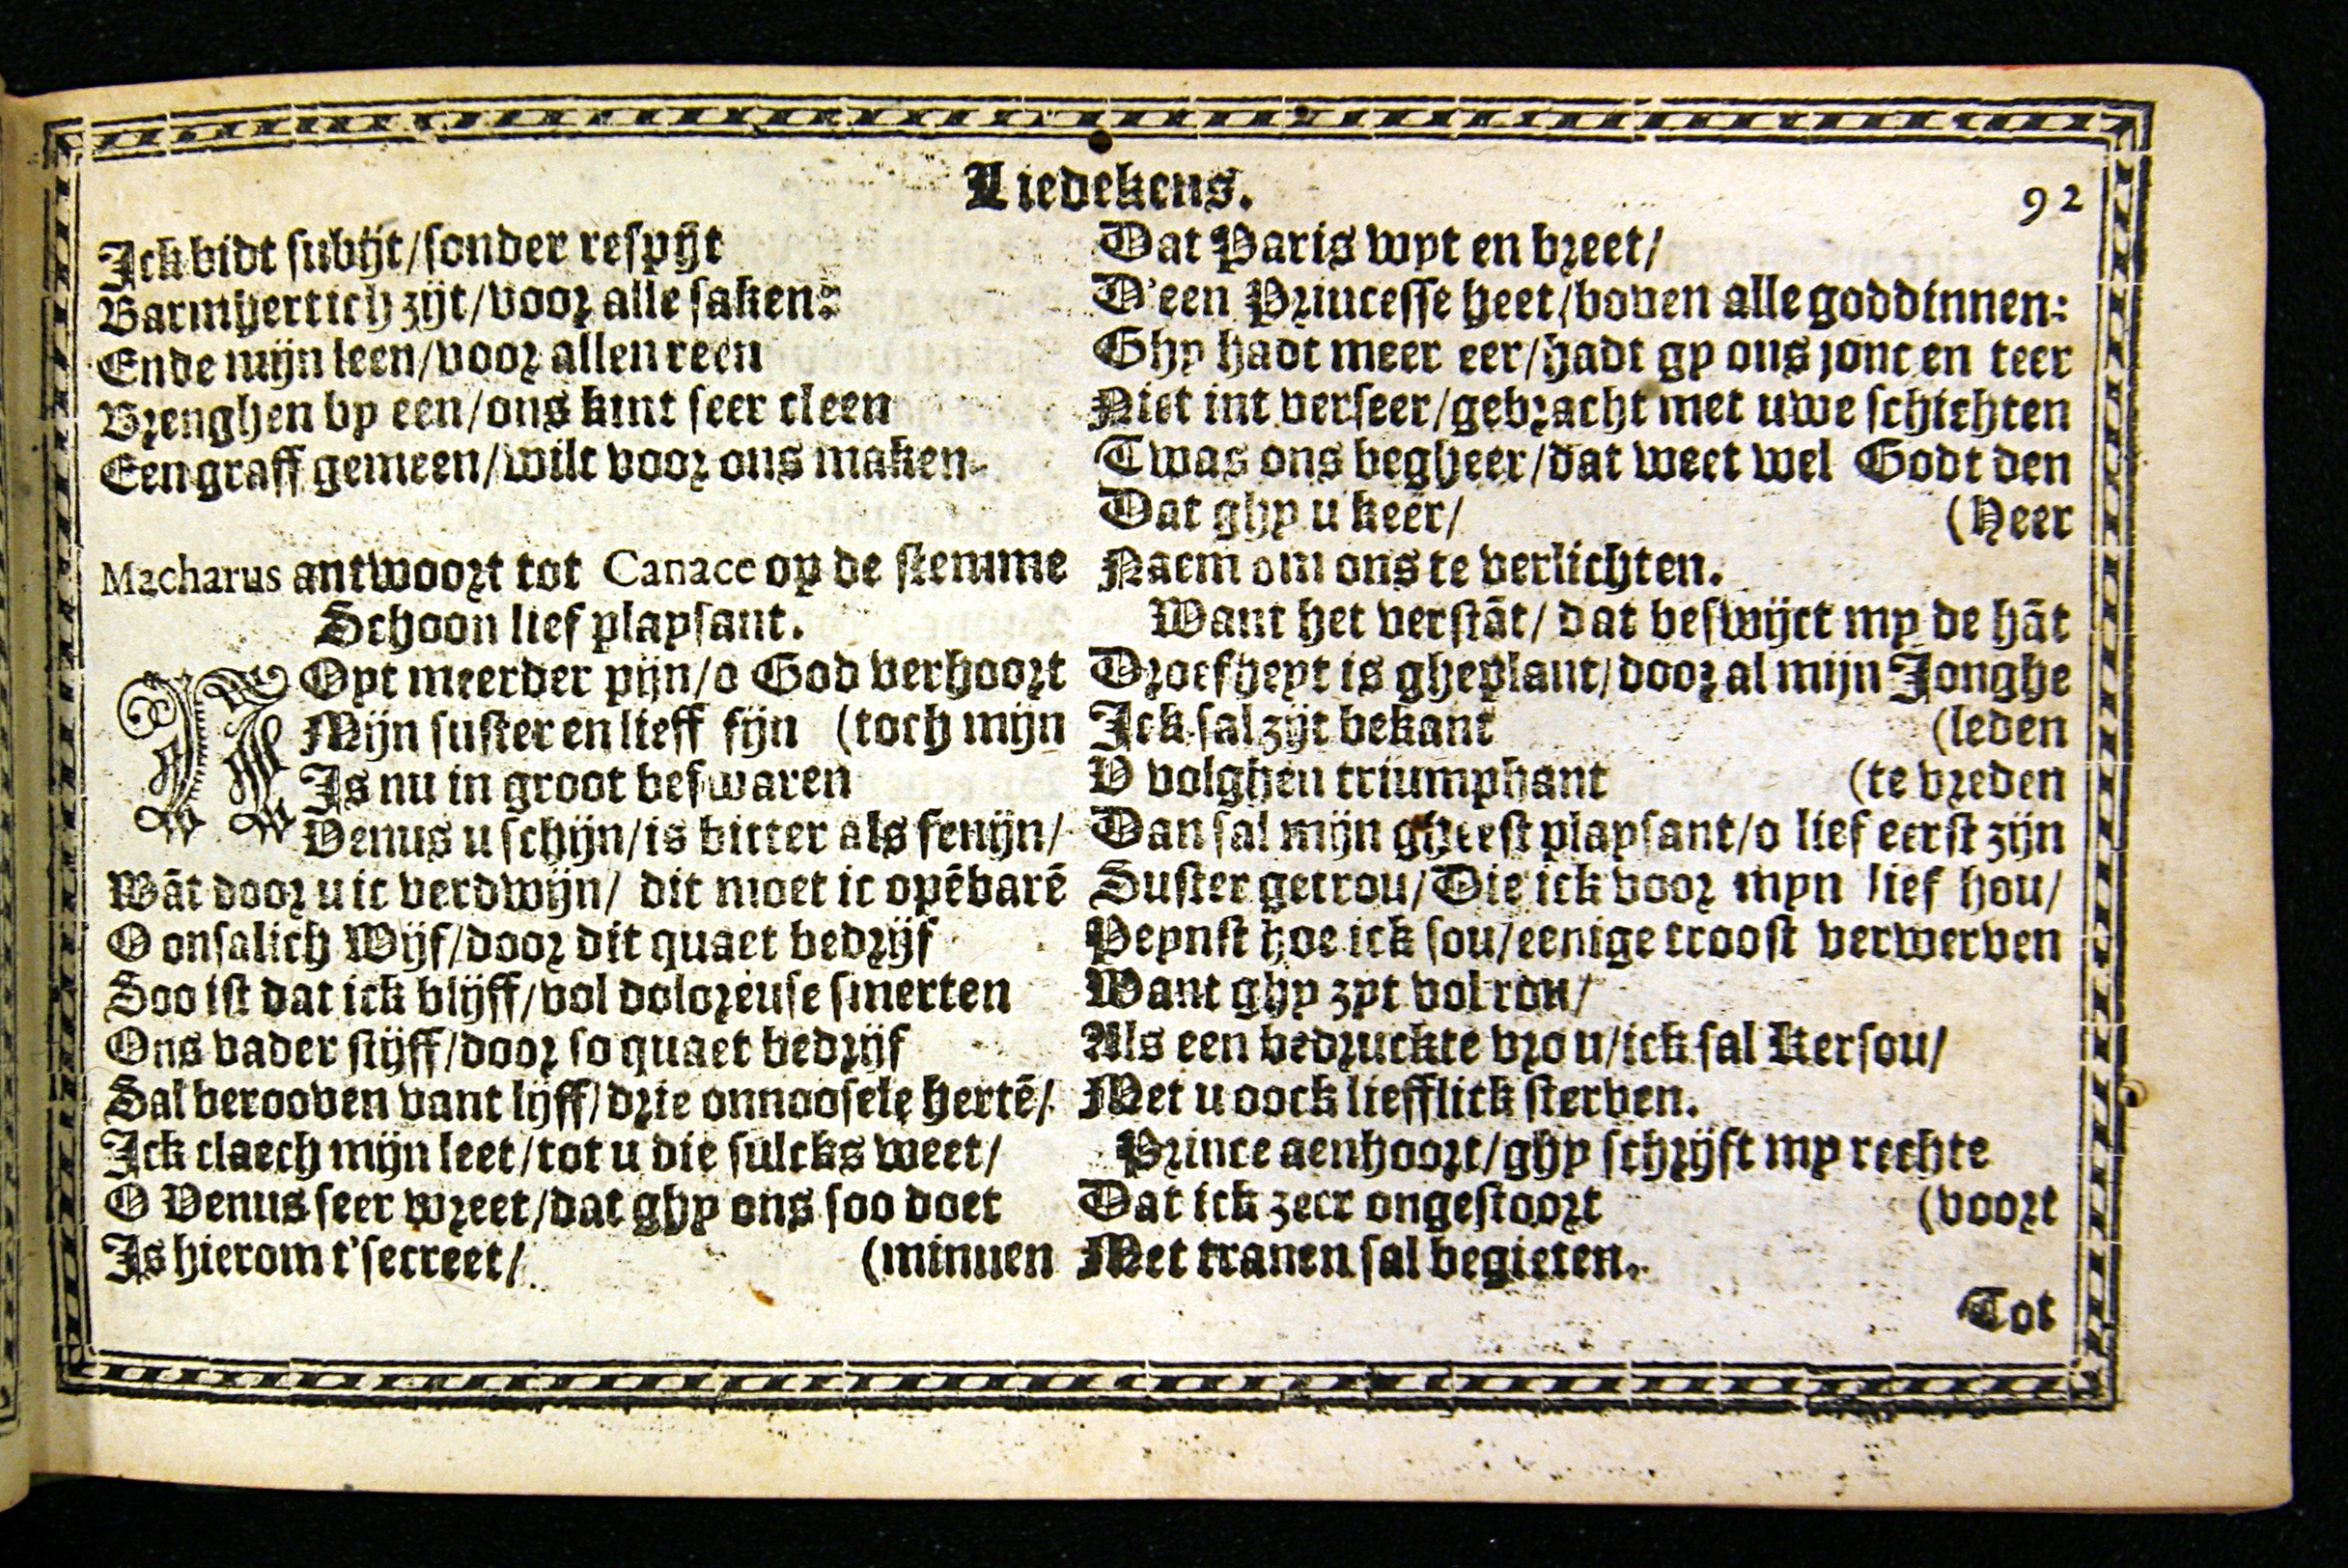 Liedekens.
92
Ick bidt subijt/sonder respijt
Barmhertich zijt/voor alle saken:
Ende mijn leen/voor allen reen
Brenghen by een/ons kint seer cleen
Een graff gemeen/wilt voor ons maken.
Macharus antwoort tot Canace op de stemme
Schoon lief playsant.
NOyt meerder pijn/o God verhoort
Mijn suster en lieff fijn (toch mijn
Is nu in groot beswaren
Venus u schijn/is bitter als fenijn/
Wāt door u ic verdwijn/ dit moet ic opēbarē
O onsalich Wijf/door dit quaet bedrijf
Soo ist dat ick blijff/vol doloreuse smerten
Ons vader stijff/door so quaet bedrijf
Sal berooven vant lijff/drie onnoosele hertē/
Ick claech mijn leet/tot u die sulcks weet/
O Venus seer wreet/dat ghy ons soo doet
Is hierom t'secreet/ (minnen
Dat Paris wyt en breet/
D'een Princesse heet/boven alle goddinnen:
Ghy hadt meer eer/hadt gy ons jonc en teer
Niet int verseer/gebracht met uwe schichten
Twas ons begheer/dat weet wel Godt den
Dat ghy u keer/ (Heer
Naem om ons te verlichten.
Want het verstāt/ dat beswijct my de hāt
Droefheyt is gheplant/door al mijn Jonghe
Ick sal zijt bekant (leden
V volghen triumphant (te vreden
Dan sal mijn gheest playsant/o lief eerst zijn
Suster getrou/Die ick voor myn lief hou/
Peynst hoe ick sou/eenige troost verwerven
Want ghy zyt vol rou/
Als een bedruckte vrou/ick sal Kersou/
Met u oock liefflick sterven.
Prince aenhoort/ghy schrijft my rechte
Dat ick zeer ongestoort (voort
Met tranen sal begieten.
Tot